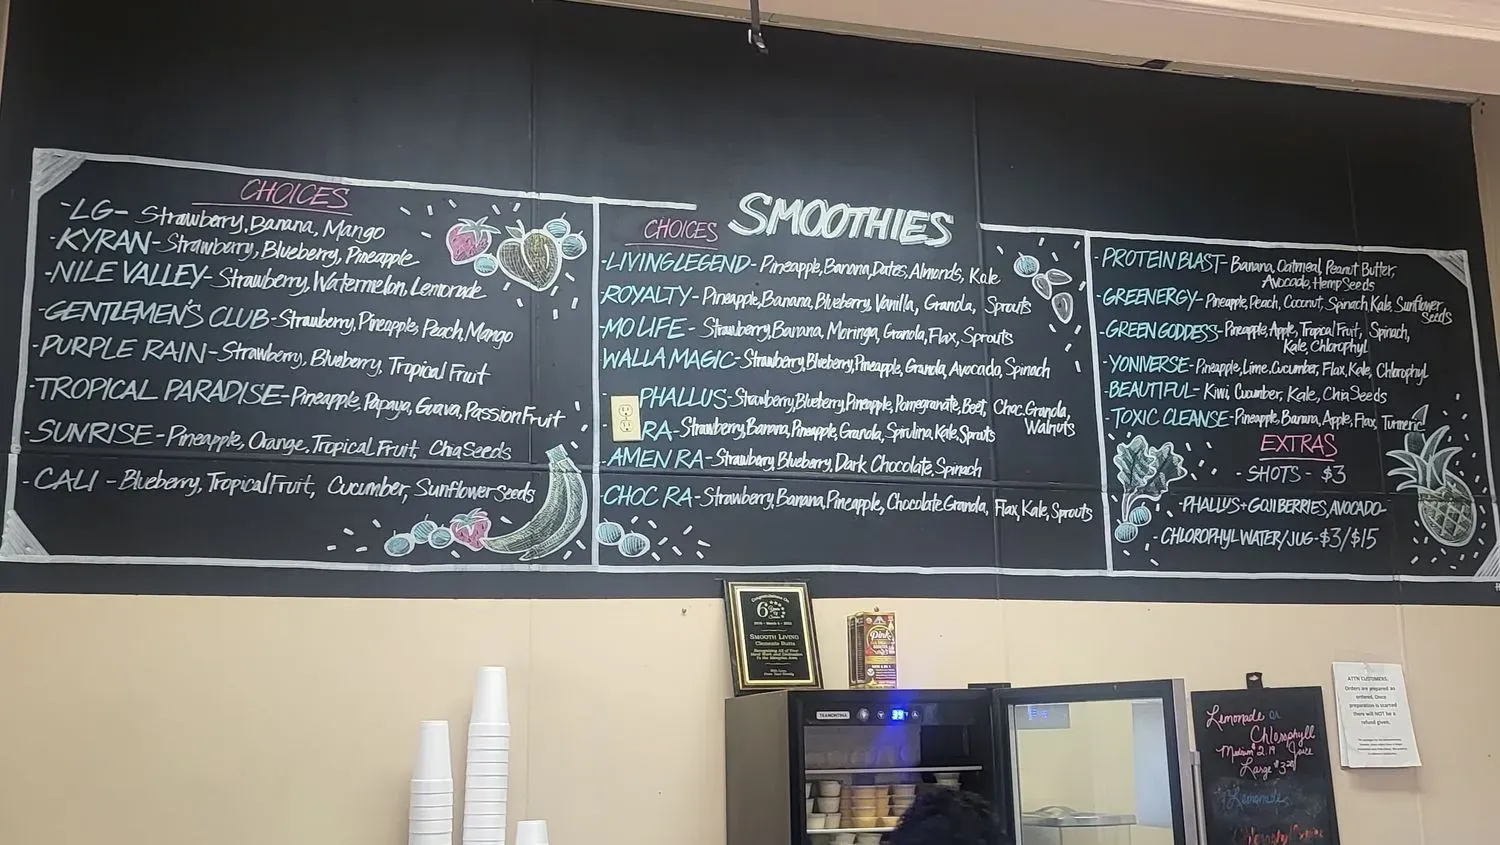 CHOICES
-LG- Strawberry, Banana, Mango
-KYRAN- Strawberry, Blueberry, Pineapple
-NILE VALLEY- Strawberry, Watermelon, Lemonade
-GENTLEMEN'S CLUB- Strawberry, Pineapple, Peach, Mango
-PURPLE RAIN- Strawberry, Blueberry, Tropical Fruit
-TROPICAL PARADISE- Pineapple, Papaya, Guava, Passion Fruit
-SUNRISE- Pineapple, Orange, Tropical Fruit, Chia Seeds
-CALI - Blueberry, Tropical Fruit, Cucumber, Sunflower Seeds
SMOOTHIES
CHOICES
-LIVING LEGEND- Pineapple, Banana, Dates, Almonds, Kale
-ROYALTY- Pineapple, Banana, Blueberry, Vanilla, Granola, Sprouts
-MO LIFE- Strawberry, Banana, Moringa, Granola, Flax, Sprouts
WALLA MAGIC- Strawberry, Blueberry, Pineapple, Granola, Avocado, Spinach
-PHALLUS- Strawberry, Blueberry, Pineapple, Pomegranate, Beet, Choc. Granola,
Walnuts
RA- Strawberry, Banana, Pineapple, Granola, Spirulina, Kale, Sprouts
-AMEN RA- Strawberry, Blueberry, Dark Chocolate, Spinach
-CHOC RA- Strawberry, Banana, Pineapple, Chocolate Granola, Flax, Kale, Sprouts
-PROTEIN BLAST- Banana, Oatmeal, Peanut Butter,
Avocado, Hemp Seeds
-GREENERGY- Pineapple, Peach, Coconut, Spinach, Kale, Sunflower
Seeds
-GREEN GODDESS- Pineapple, Apple, Tropical Fruit, Spinach,
Kale, Chlorophyl
-YONIVERSE- Pineapple, Lime, Cucumber, Flax, Kale, Chlorophyl
-BEAUTIFUL- Kiwi, Cucumber, Kale, Chia Seeds
-TOXIC CLEANSE- Pineapple, Banana, Apple, Flax, Turmeric
EXTRAS
- SHOTS - $3
-PHALLUS + GOJI BERRIES, AVOCADO-
- CHLOROPHYL WATER/JUG- $3/$15
Congratulations On
6 Years
SMOOTH LIVING
Clemente Butts
Pink
TRAMONTINA
Lemonade or
Chlorophyll
Juice
Medium $2.19
Large $3.28
Lemonade
ATTN CUSTOMERS,
Orders are prepared as
ordered. Once
preparation is started
there will NOT be a
refund given.